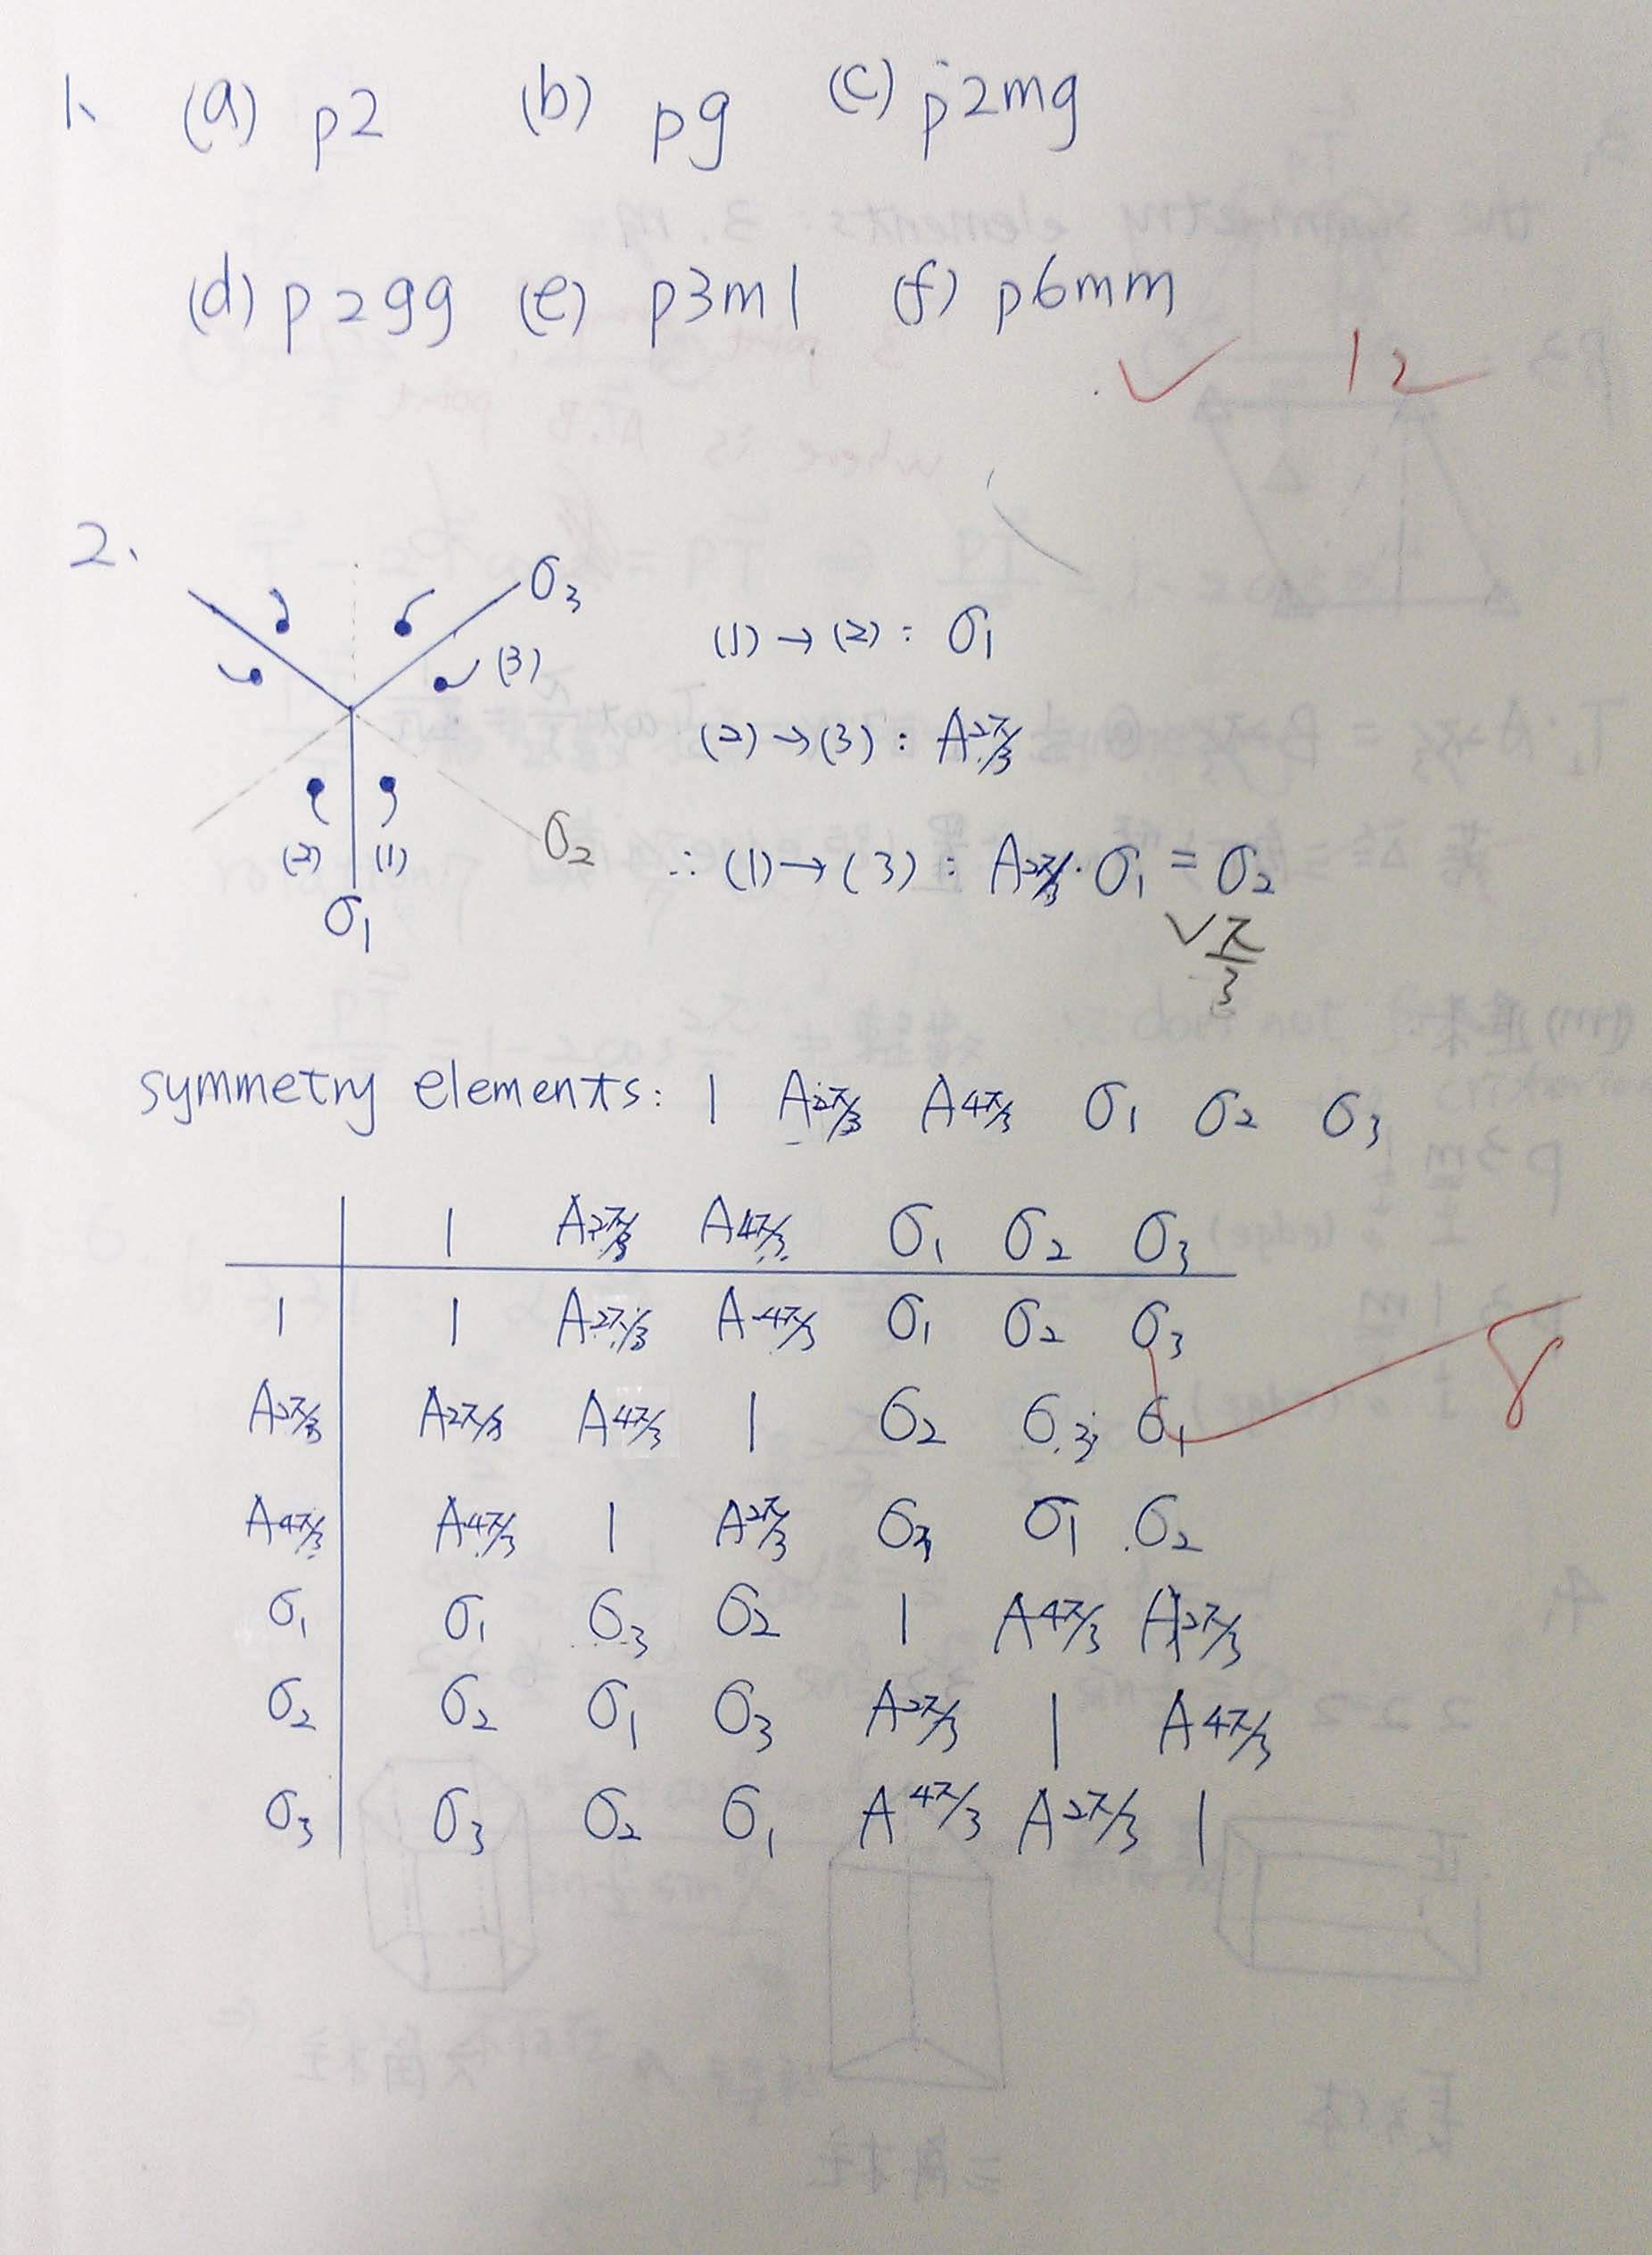 1、 (a) p2 (b) pg (c) p2mg
(d) p2gg (e) p3m1 (f) p6mm
12
2、
σ3
(1)→(2): σ1
(3)
(2)→(3): A2π/3
σ2
(2) (1)
∴ (1)→(3): A2π/3・σ1 = σ2
σ1
π/3
symmetry elements: 1 A2π/3 A4π/3 σ1 σ2 σ3
1 A2π/3 A4π/3 σ1 σ2 σ3
1 1 A2π/3 A4π/3 σ1 σ2 σ3
8
A2π/3 A2π/3 A4π/3 1 σ2 σ3 σ1
A4π/3 A4π/3 1 A2π/3 σ3 σ1 σ2
σ1 σ1 σ3 σ2 1 A4π/3 A2π/3
σ2 σ2 σ1 σ3 A2π/3 1 A4π/3
σ3 σ3 σ2 σ1 A4π/3 A2π/3 1